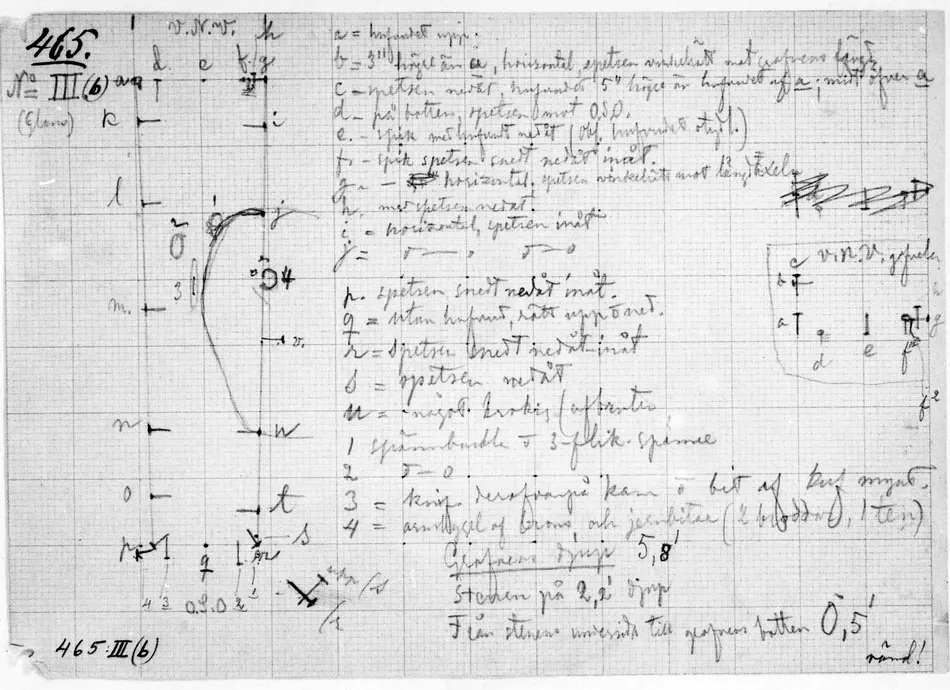 465.
No III (b)
(Glano)
V. N. V. h
d e f g
a
k i
l j
2 1
3 4
m
v.
n u
o t
p s
q r
4 3 O.S.O 2 1
465 III (b)
a = hufvudet upp.
b = 3''' högre än a, horisontal, spetsen vinkelrät mot grafvens längd
c – spetsen nedåt, hufvudet 5" högre än hufvudet af a, midt öfver a
d – på botten, spetsen mot O.S.O.
e. – spik med hufvudet nedåt
f. – spik spetsen snedt nedåt inåt.
g = – horizontal. spetsen vinkelrätt mot längdaxeln
h. – med spetsen nedåt
i = horizontal, spetsen inåt
j = d–o d–o
p. spetsen snedt nedåt inåt.
q = utan hufvud, rätt upp o ned.
r = spetsen snedt nedåt inåt
s = spetsen nedåt
u = något krokig
1 spännbuckla o 3-flik. spänne
2 d–o
3 = knif, derofvanpå kam o bit af
4 = armrygel af brons och jernbitar (2 broddar, 1 ten)
Grafvens djup 5,8'
Stenen på 2,2' djup
Från stenens undersida till grafvens botten 0,5'
vänd!
c V. N. V. gafveln
b h
a g
d e f
f2